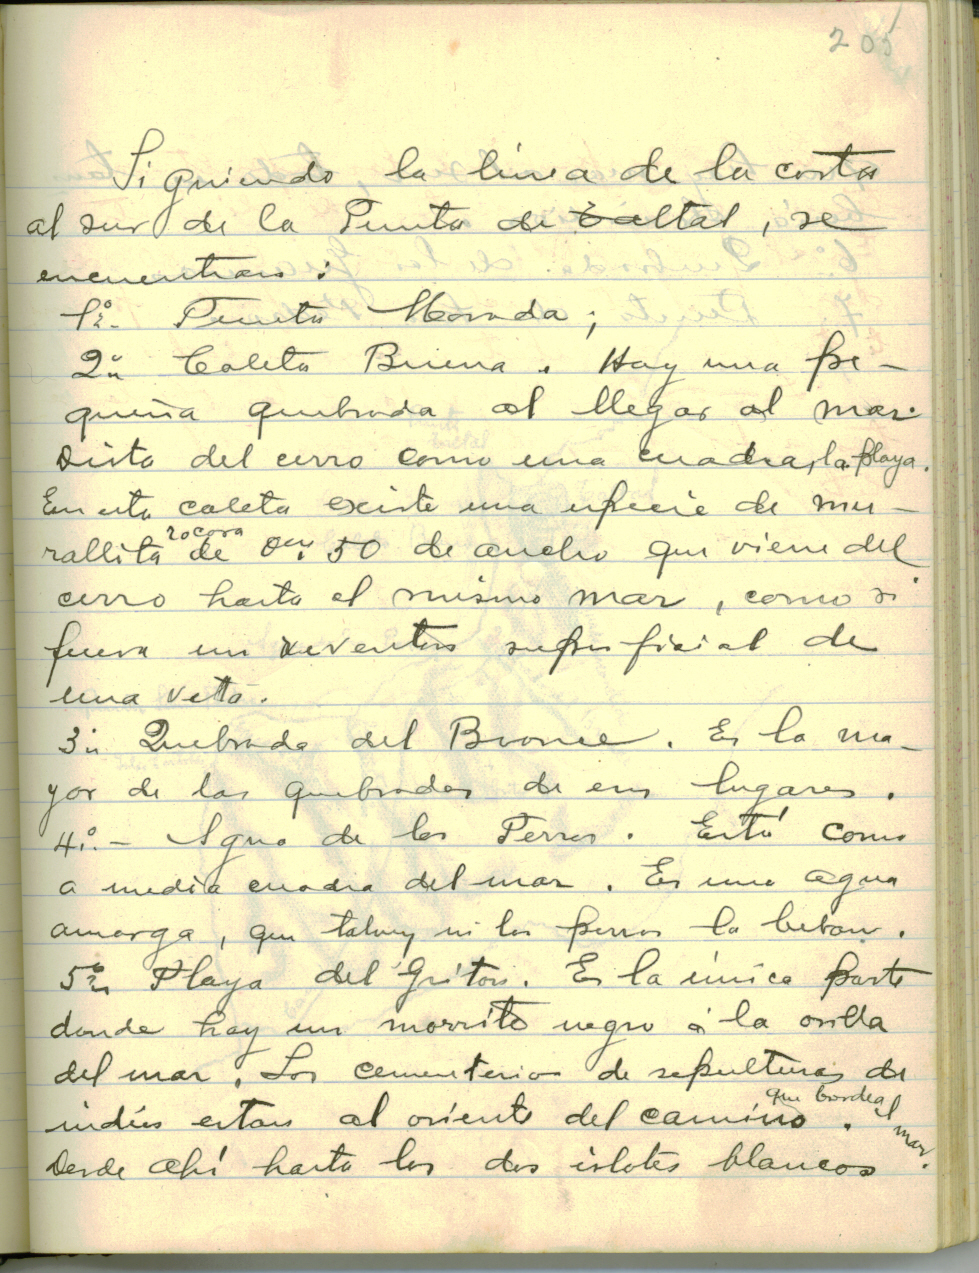 205
Siguiendo la línea de la costa
al sur de la Punta de Taltal, se
encuentran:
1º.- Punta Morada;
2º. Caleta Buena. Hay una pe-
queña quebrada al llegar al mar.
Dista del cerro como una cuadra, la playa.
En esta caleta existe una especie de mu-
rallita rocosa de 0m.50 de ancho que viene del
cerro hasta el mismo mar, como si
fuera un reventon superficial de
una veta.
3º. Quebrada del Bronce. Es la ma-
yor de las quebradas de esos lugares.
4º.- Agua de los Perros. Está como
a media cuadra del mar. Es una agua
amarga, que talvez ni los perros la beban.
5º. Playa del Griton. Es la única parte
donde hay un morrito negro á la orilla
del mar. Los cementerios de sepulturas de
indios estan al oriente del camino que bordea el mar.
Desde ahí hasta los dos islotes blancos